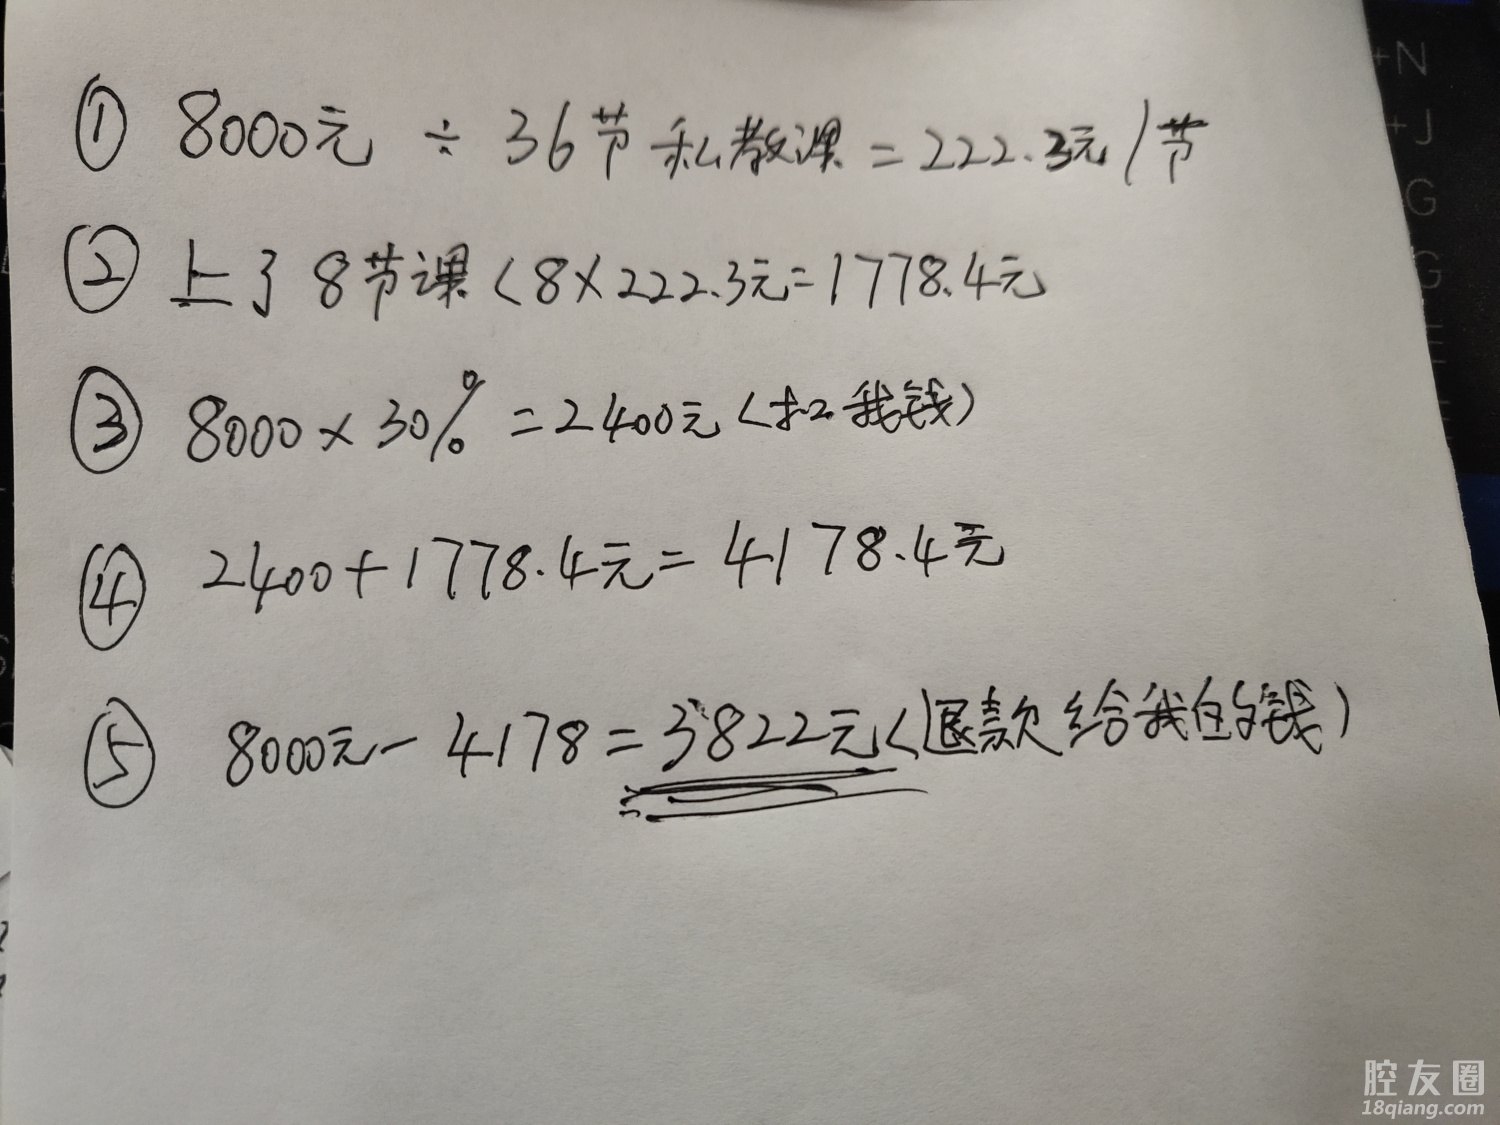 ① 8000元 ÷ 36节 私教课 = 222.3元/节
② 上了8节课(8×222.3元=1778.4元
③ 8000×30% =2400元(扣我钱)
④ 2400+1778.4元=4178.4元
⑤ 8000元-4178=3822元(退款给我的钱)
+N
+J
G
G
腔友圈
18qiang.com